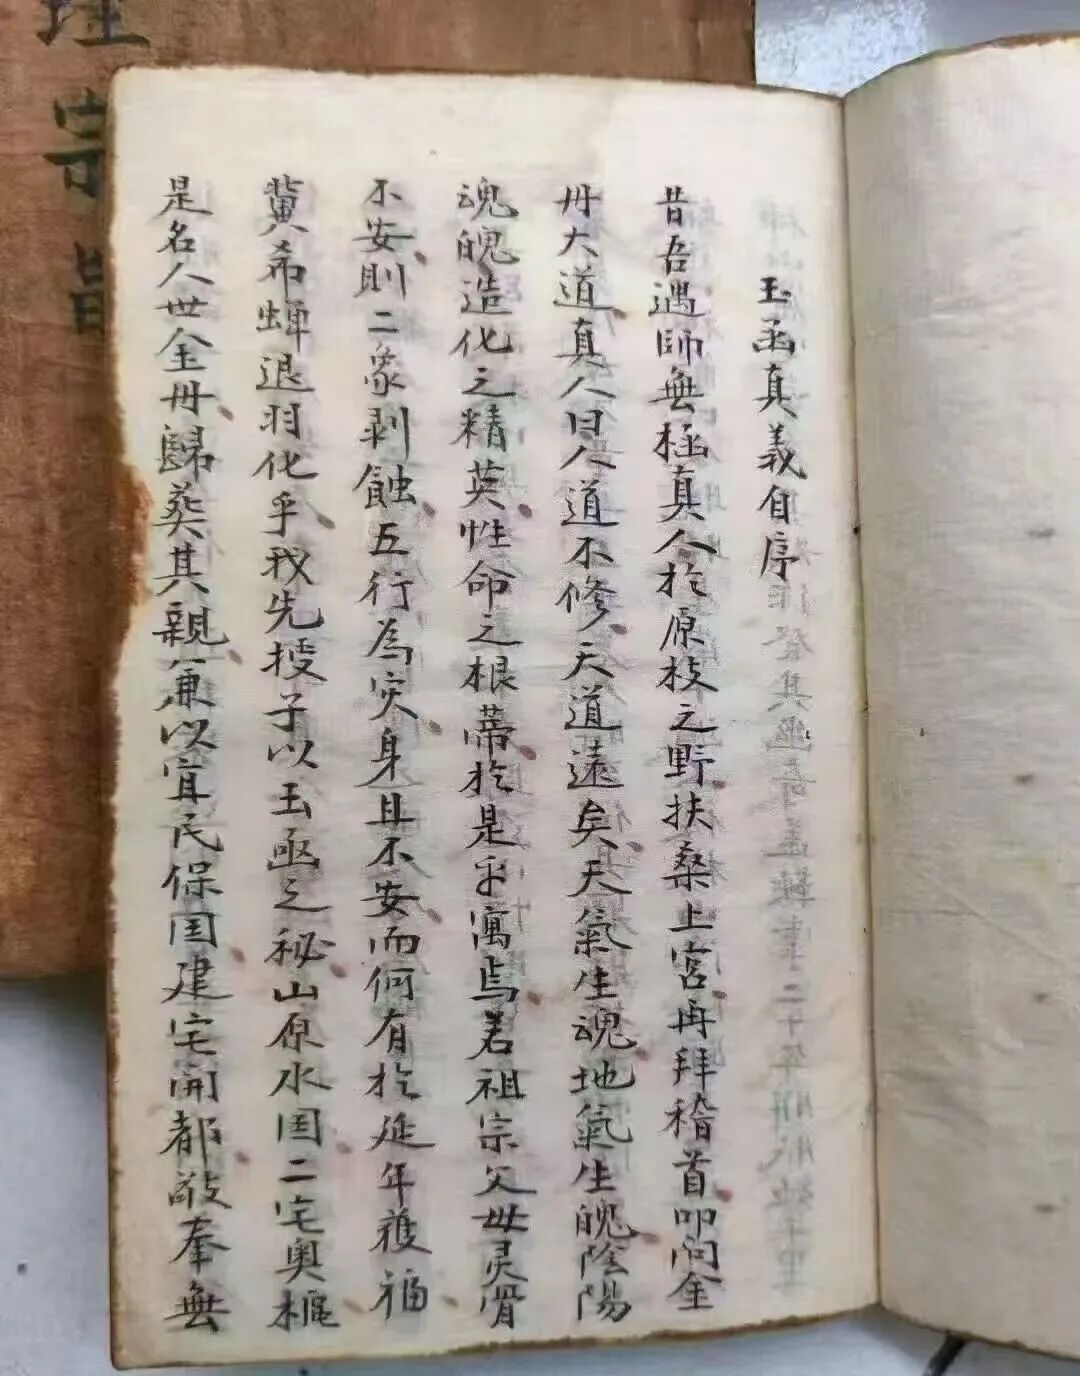 玉函真義自序
昔吾遇師無極真人於原枝之野扶桑上宮再拜稽首叩問金
丹大道真人曰人道不修天道遠矣天氣生魂地氣生魄陰陽
魂魄造化之精英性命之根蒂於是乎寓焉若祖宗父母灵骨
不安則二象剥蝕五行為灾身且不安而何有於延年獲福
冀希蟬退羽化乎我先授子以玉函之秘山原水国二宅奥樞
是名人世金丹歸葬其親兼以宜民保国建宅開都敬奉無
宗旨